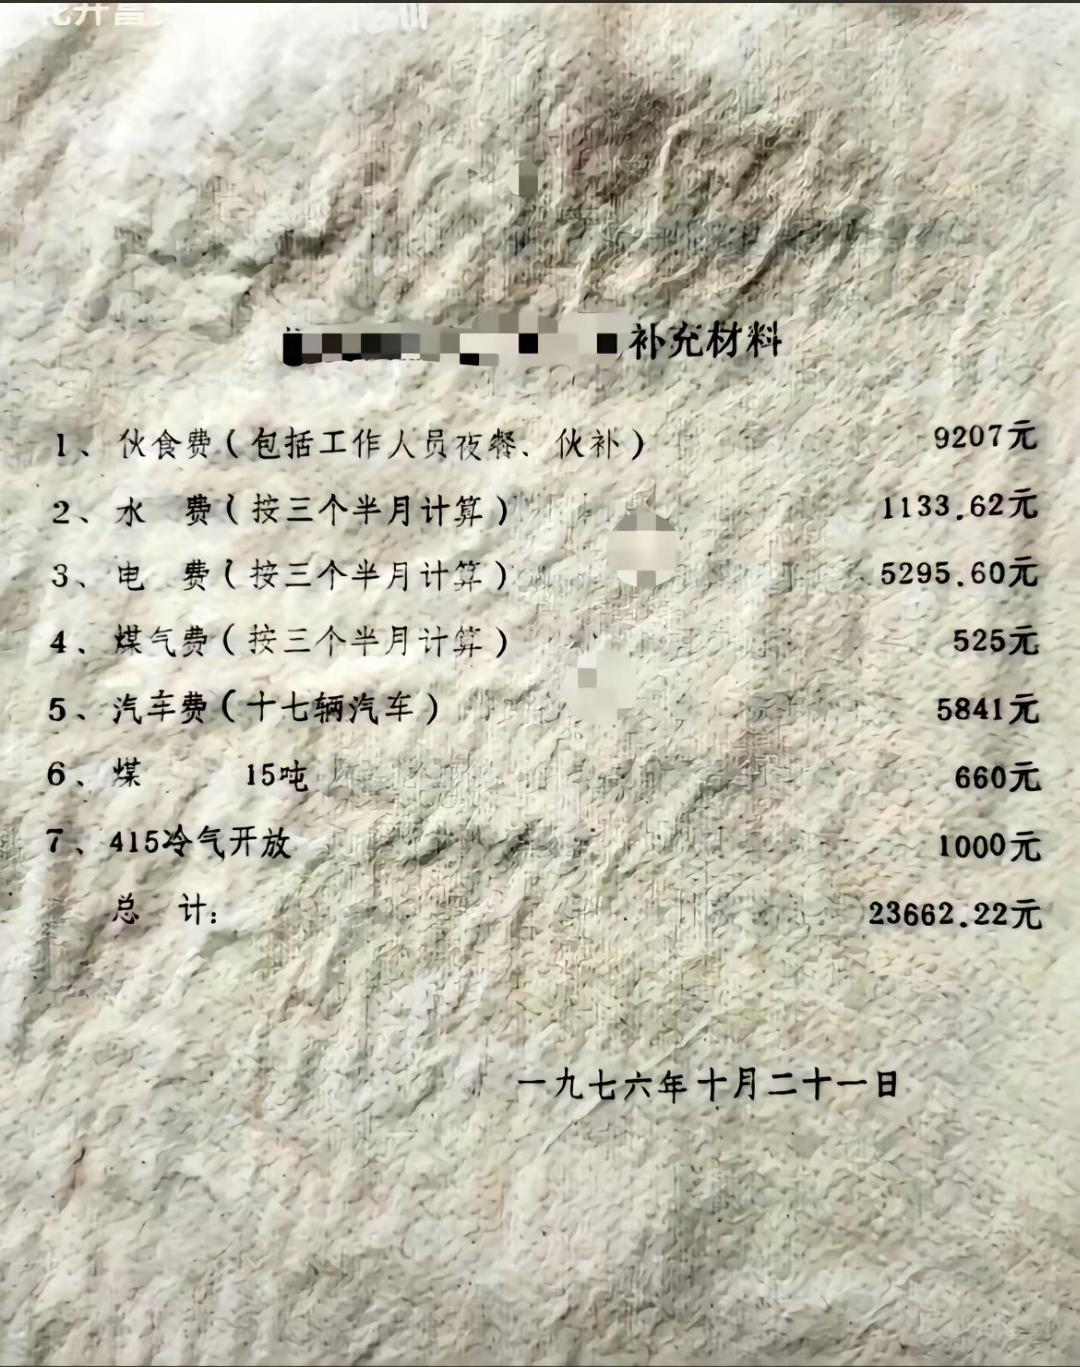 补充材料
1、伙食费(包括工作人员夜餐、伙补) 9207元
2、水　费(按三个半月计算) 1133.62元
3、电　费(按三个半月计算) 5295.60元
4、煤气费(按三个半月计算) 525元
5、汽车费(十七辆汽车) 5841元
6、煤　　　15吨 660元
7、415冷气开放 1000元
总　计: 23662.22元
一九七六年十月二十一日